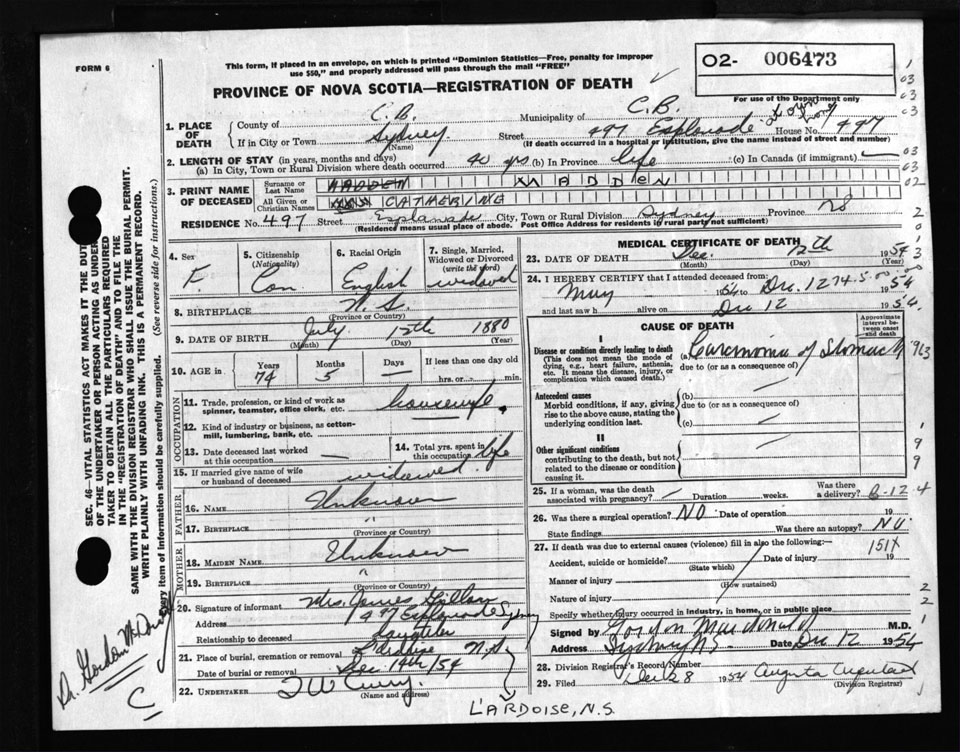 FORM 6
This form, if placed in an envelope, on which is printed "Dominion Statistics—Free, penalty for improper
use $50," and properly addressed will pass through the mail "FREE"
O2- 006473
PROVINCE OF NOVA SCOTIA—REGISTRATION OF DEATH
For use of the Department only
1. PLACE OF DEATH County of C.B. Municipality of C.B.
If in City or Town Sydney (Name) Street 497 Esplanade House No. 497
(If death occurred in a hospital or institution, give the name instead of street and number)
2. LENGTH OF STAY (in years, months and days)
(a) In City, Town or Rural Division where death occurred 40 yrs (b) In Province life (c) In Canada (if immigrant) —
3. PRINT NAME OF DECEASED Surname or Last Name MADDEN
All Given or Christian Names CATHERINE
RESIDENCE No. 497 Street Esplanade City, Town or Rural Division Sydney Province NS
(Residence means usual place of abode. Post Office Address for residents in rural parts not sufficient)
4. Sex F.
5. Citizenship (Nationality) Can
6. Racial Origin English
7. Single, Married, Widowed or Divorced (write the word) widowed
8. BIRTHPLACE N.S. (Province or Country)
9. DATE OF BIRTH July 12th 1880
(Month) (Day) (Year)
10. AGE in Years 74 Months 5 Days — If less than one day old hrs. or min.
OCCUPATION
11. Trade, profession, or kind of work as spinner, teamster, office clerk, etc. housewife
12. Kind of industry or business, as cotton-mill, lumbering, bank, etc.
13. Date deceased last worked at this occupation —
14. Total yrs. spent in this occupation life
15. If married give name of wife or husband of deceased widowed
FATHER
16. NAME Unknown
17. BIRTHPLACE "
(Province or Country)
MOTHER
18. MAIDEN NAME Unknown
19. BIRTHPLACE "
(Province or Country)
20. Signature of informant Mrs. James
Address 497 Esplanade Sydney
Relationship to deceased daughter
21. Place of burial, cremation or removal L'ardoise N.S.
Date of burial or removal Dec 14th/54
22. UNDERTAKER T W Curry
(Name and address)
L'ARDOISE, N.S.
MEDICAL CERTIFICATE OF DEATH
23. DATE OF DEATH Dec. 12th 1954
(Month) (Day) (Year)
24. I HEREBY CERTIFY that I attended deceased from:
May 1954 to Dec. 12 1954
and last saw h alive on Dec 12 1954
CAUSE OF DEATH
Approximate interval between onset and death
I
Disease or condition directly leading to death (a) Carcinoma of Stomach
(This does not mean the mode of dying, e.g., heart failure, asthenia, etc. It means the disease, injury, or complication which caused death.)
due to (or as a consequence of)
Antecedent causes (b) —
Morbid conditions, if any, giving rise to the above cause, stating the underlying condition last.
due to (or as a consequence of)
(c) —
II
Other significant conditions contributing to the death, but not related to the disease or condition causing it.
25. If a woman, was the death associated with pregnancy? — Duration weeks. Was there a delivery?
B-12
26. Was there a surgical operation? NO Date of operation 19
State findings Was there an autopsy? NO
27. If death was due to external causes (violence) fill in also the following:—
151X
Accident, suicide or homicide? Date of injury 19
(State which)
Manner of injury
(How sustained)
Nature of injury
Specify whether injury occurred in industry, in home, or in public place
Signed by Gordon Macdonald M.D.
Address Sydney N.S. Date Dec 12 1954
28. Division Registrar's Record Number
29. Filed Dec 28 1954 Augusta
(Division Registrar)
SEC. 46—VITAL STATISTICS ACT MAKES IT THE DUTY
OF THE UNDERTAKER OR PERSON ACTING AS UNDERTAKER
TO OBTAIN ALL THE PARTICULARS REQUIRED
IN THE "REGISTRATION OF DEATH" AND TO FILE THE
SAME WITH THE DIVISION REGISTRAR WHO SHALL ISSUE THE BURIAL PERMIT.
WRITE PLAINLY WITH UNFADING INK. THIS IS A PERMANENT RECORD.
Every item of information should be carefully supplied. (See reverse side for instructions.)
Dr. Gordon
C